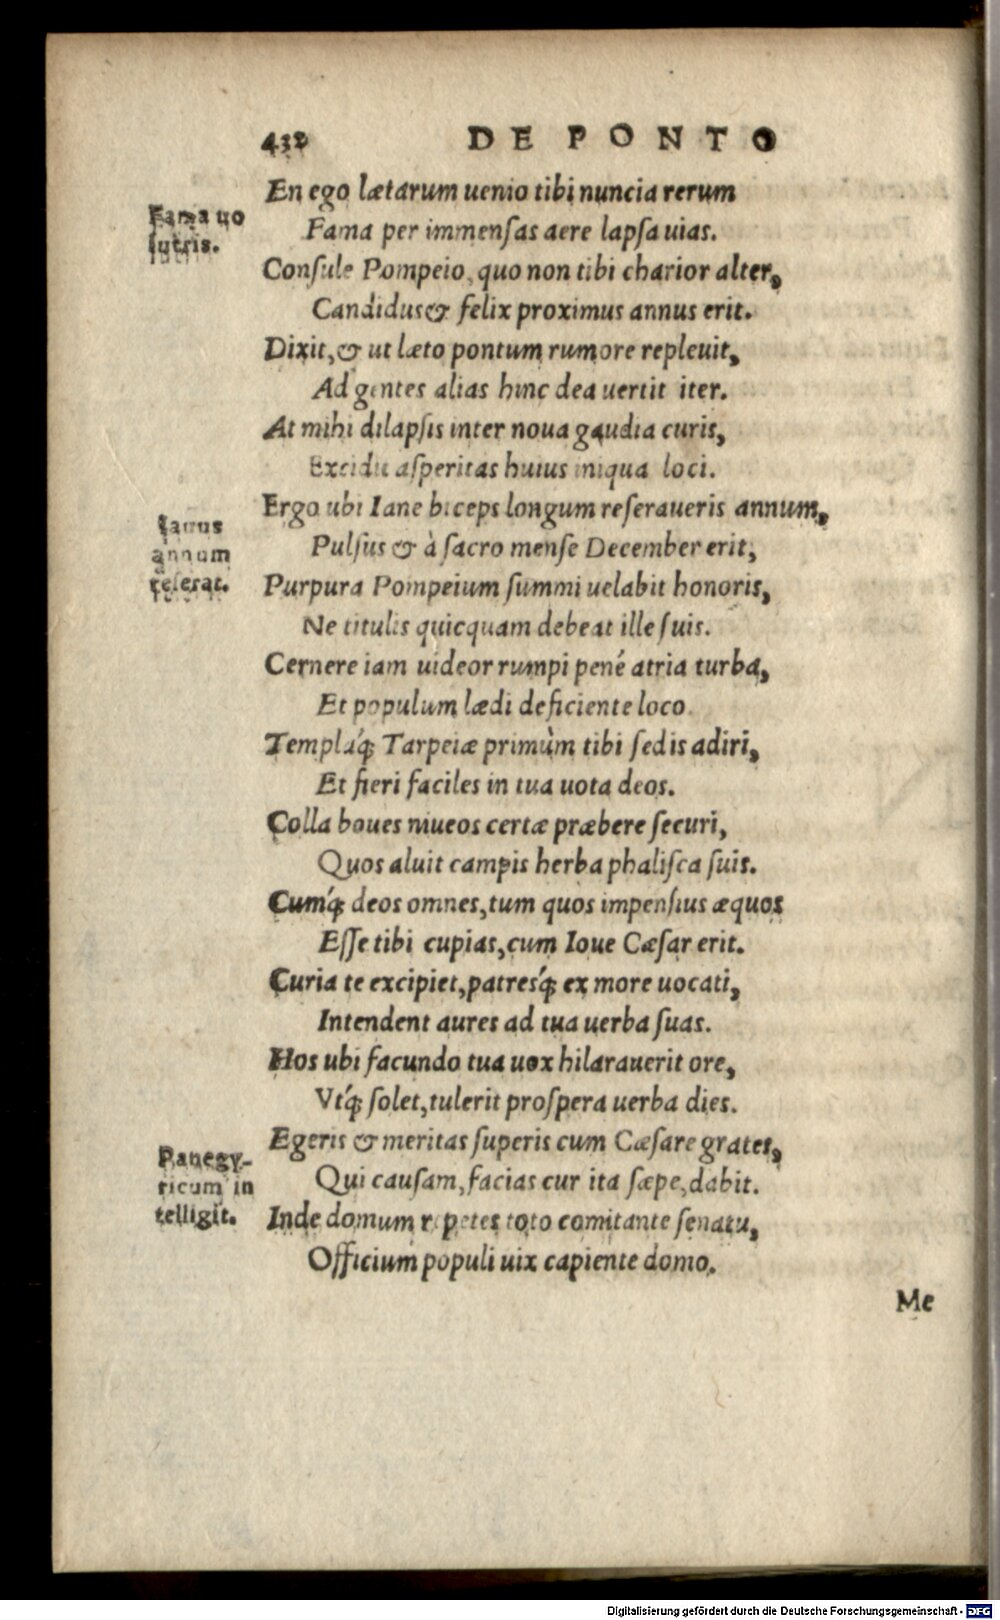 432 DE PONTO
En ego lætarum uenio tibi nuncia rerum
Fama uo
Fama per immenſas aere lapſa uias.
lutris.
Conſule Pompeio, quo non tibi charior alter,
Candidus & felix proximus annus erit.
Dixit, & ut læto pontum rumore repleuit,
Ad gentes alias hinc dea uertit iter.
At mihi dilapſis inter noua gaudia curis,
Excidit aſperitas huius iniqua loci.
Ergo ubi Iane biceps longum reſeraueris annum,
Ianus
annum
reſerat.
Pulſus & à ſacro menſe December erit,
Purpura Pompeium ſummi uelabit honoris,
Ne titulis quicquam debeat ille ſuis.
Cernere iam uideor rumpi pené atria turba,
Et populum lædi deficiente loco.
Templáq; Tarpeiæ primùm tibi ſedis adiri,
Et fieri faciles in tua uota deos.
Colla boues niueos certæ præbere ſecuri,
Quos aluit campis herba phaliſca ſuis.
Cumq́; deos omnes, tum quos impenſius æquos
Eſſe tibi cupias, cum Ioue Cæſar erit.
Curia te excipiet, patresq́; ex more uocati,
Intendent aures ad tua uerba ſuas.
Hos ubi facundo tua uox hilarauerit ore,
Vtq́; ſolet, tulerit proſpera uerba dies.
Egeris & meritas ſuperis cum Cæſare grates,
Panegy-
ricum in
telligit.
Qui cauſam, facias cur ita ſæpe, dabit.
Inde domum repetes toto comitante ſenatu,
Officium populi uix capiente domo.
Me
Digitalisierung gefördert durch die Deutsche Forschungsgemeinschaft - DFG